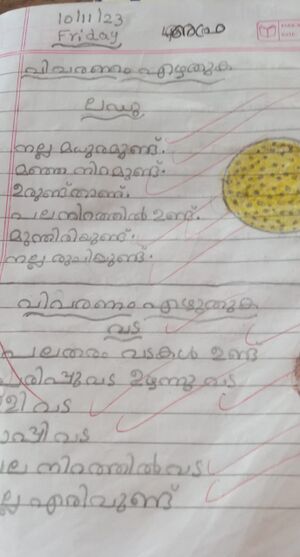 10/11/23
Friday
വിവരണം എഴുതുക
ലഡു
നല്ല മധുരമുണ്ട്.
മഞ്ഞ നിറമുണ്ട്.
ഉരുണ്ടതാണ്.
പല നിറത്തിൽ ഉണ്ട്.
മുന്തിരിയുണ്ട്.
നല്ല രുചിയുണ്ട്.
വിവരണം എഴുതുക
വട
പലതരം വടകൾ ഉണ്ട്
പരിപ്പുവട ഉഴുന്നു വട
ളി വട
വട
ല നിറത്തിൽ വട
ല്ല എരിവുണ്ട്